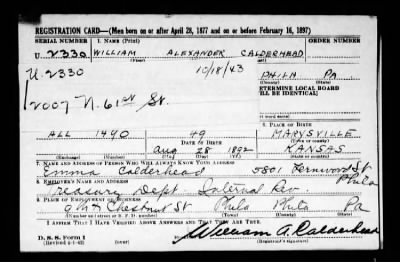 REGISTRATION CARD—(Men born on or after April 28, 1877 and on or before February 16, 1897)
SERIAL NUMBER 1. NAME (Print) ORDER NUMBER
U. 2330 WILLIAM ALEXANDER CALDERHEAD
U. 2330 10/18/43 PHILA PA
2007 N. 61st St. DETERMINE LOCAL BOARD
WILL BE IDENTICAL)
6. PLACE OF BIRTH
ALL 1490 49 MARYSVILLE
DATE OF BIRTH (Town or county)
Aug 28 1892 KANSAS
(Exchange) (Number) (Mo.) (Day) (Yr.) (State or country)
7. NAME AND ADDRESS OF PERSON WHO WILL ALWAYS KNOW YOUR ADDRESS
Emma Calderhead 5801 St Phila
8. EMPLOYER'S NAME AND ADDRESS
Treasury Dept. Internal Rev
9. PLACE OF EMPLOYMENT OR BUSINESS
9th & Chestnut St Phila Phila Pa
(Number and street or R. F. D. number) (Town) (County) (State)
I AFFIRM THAT I HAVE VERIFIED ABOVE ANSWERS AND THAT THEY ARE TRUE.
D. S. S. Form 1
(Revised 4-1-42)
William A. Calderhead